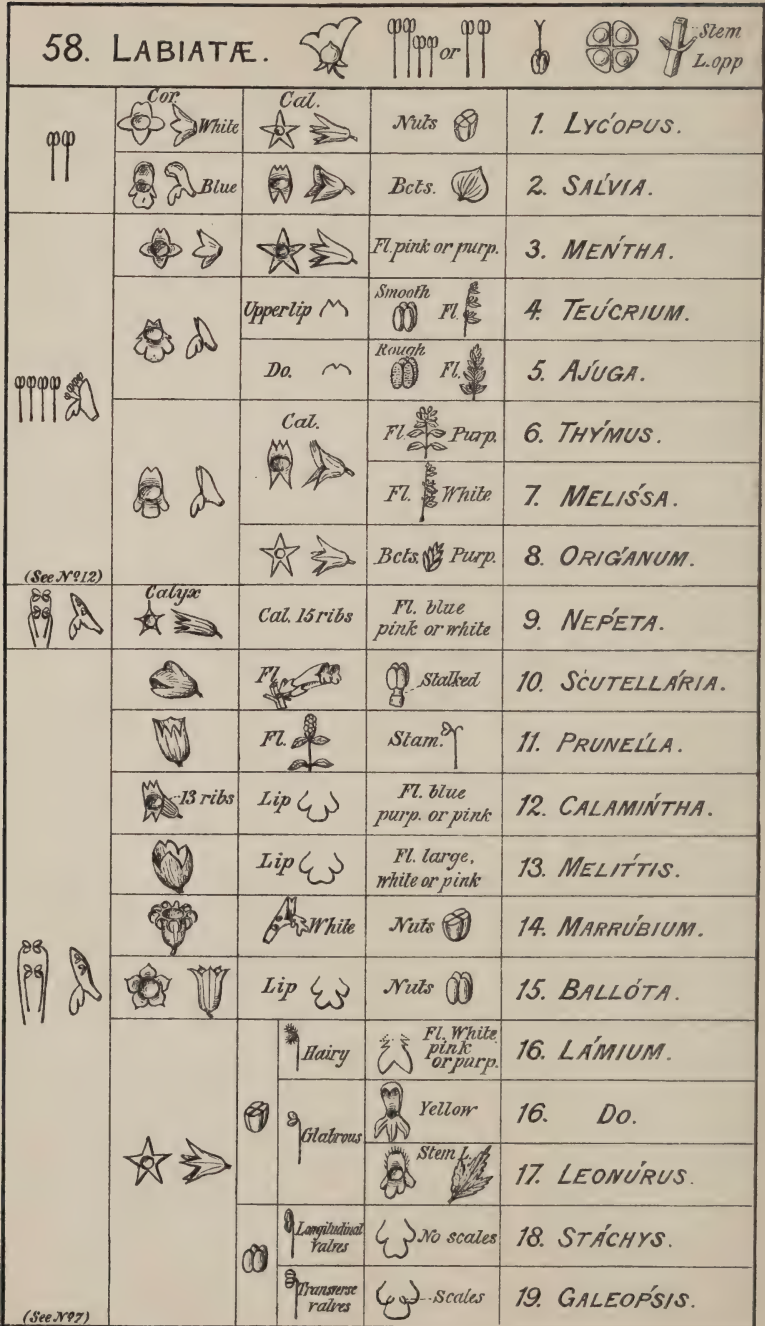 58. LABIATÆ. or Stem
L.opp
Cor. White Cal. Nuts 1. LYCÓPUS.
Blue Bcts. 2. SÁLVIA.
Fl. pink or purp. 3. MÉNTHA.
Upper lip Smooth Fl. 4. TEÚCRIUM.
Do. Rough Fl. 5. AJUGA.
Cal. Fl. Purp. 6. THÝMUS.
Fl. White 7. MELÍSSA.
Bcts. Purp. 8. ORÍGANUM.
(See Nº 12)
Calyx Cal. 15 ribs Fl. blue
pink or white 9. NÉPETA.
Fl. Stalked 10. SCUTELLÁRIA.
Fl. Stam. 11. PRUNÉLLA.
13 ribs Lip Fl. blue
purp. or pink 12. CALAMÍNTHA.
Lip Fl. large,
white or pink 13. MELÍTTIS.
White Nuts 14. MARRÚBIUM.
Lip Nuts 15. BALLÓTA.
Hairy Fl. White
pink
or purp. 16. LÁMIUM.
Glabrous Yellow 16. Do.
Stem L. 17. LEONÚRUS.
Longitudinal
valves No scales 18. STÁCHYS.
Transverse
valves Scales 19. GALEÓPSIS.
(See Nº 7)